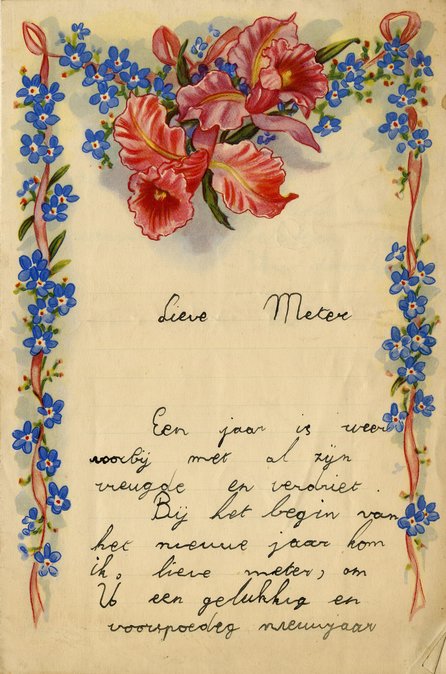 Lieve Meter
Een jaar is weer
voorbij met al zijn
vreugde en verdriet.
Bij het begin van
het nieuwe jaar kom
ik, lieve meter, om
U een gelukkig en
voorspoedeg nieuwjaar